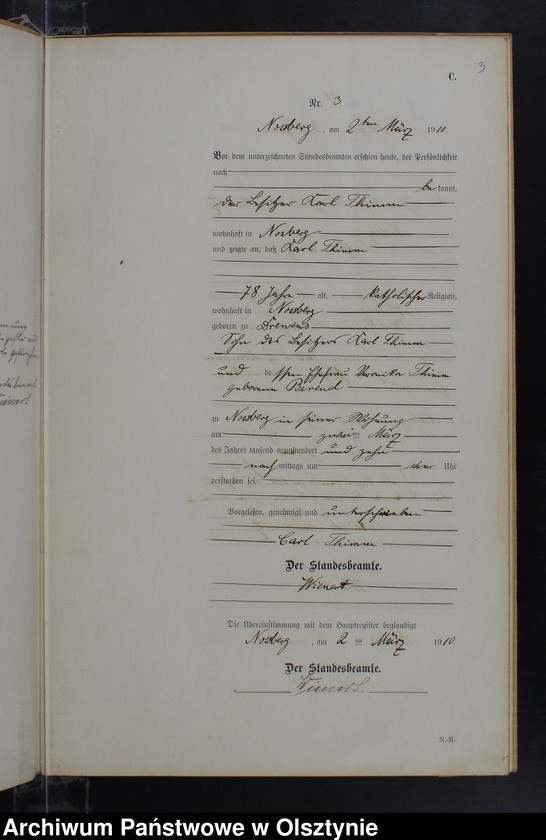 3
C.
Nr. 3
Nossberg, am 2ten März 1910.
Vor dem unterzeichneten Standesbeamten erschien heute, der Persönlichkeit
nach
bekannt,
der Besitzer Karl Thimm
wohnhaft in Nossberg
und zeigte an, daß Karl Thimm
78 Jahre alt, katholischer Religion,
wohnhaft in Nossberg
geboren zu Drewens
Sohn des Besitzers Karl Thimm
und dessen Ehefrau Veronika Thimm
geborene Berend
zu Nossberg in seiner Wohnung
am zweiten März
des Jahres tausend neunhundert und zehn
nachmittags um vier Uhr
verstorben sei.
Vorgelesen, genehmigt und unterschrieben
Carl Thimm
Der Standesbeamte.
Wienert
Die Übereinstimmung mit dem Hauptregister beglaubigt
Nossberg, am 2ten März 1910.
Der Standesbeamte.
Wienert.
N.-R.
Archiwum Państwowe w Olsztynie